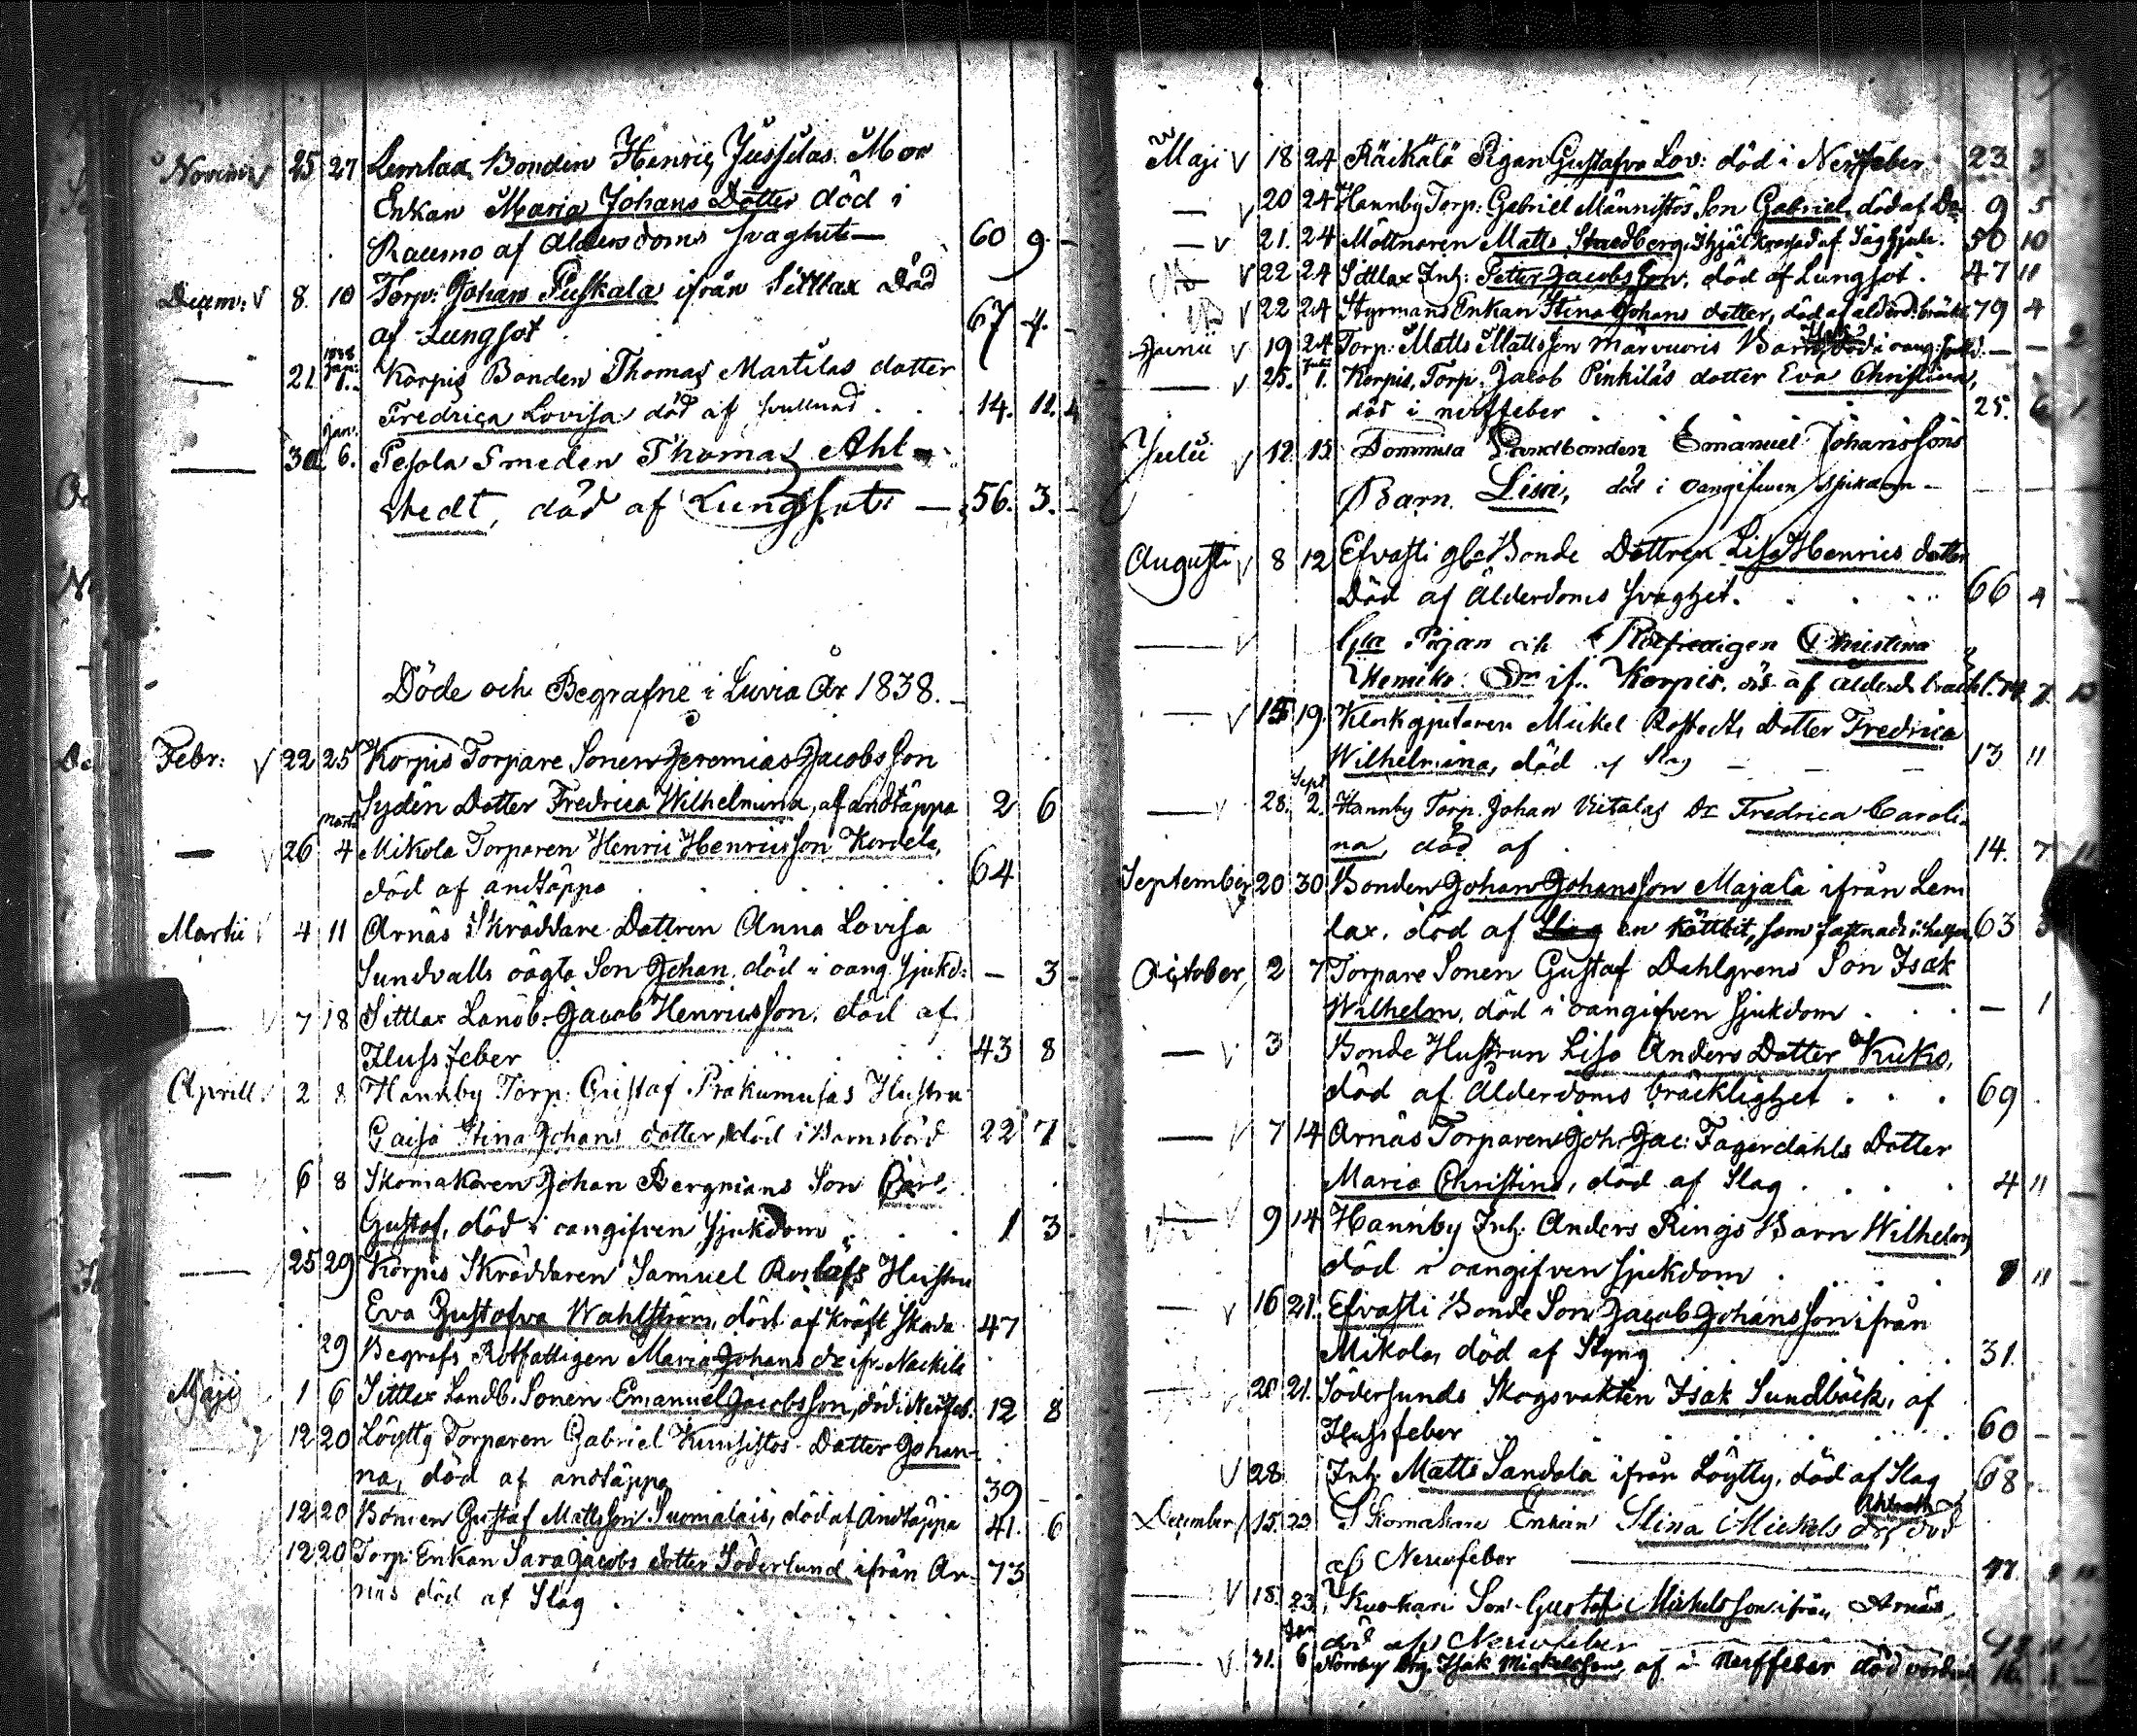 Novemb. 25 27 Lemlax Bonden Henric Jussilas Mor
Enkan Maria Johans Dotter död i
Raumo af Ålderdoms svaghet — 60 9. -
Decem: 8. 10 Torp: Johan Puskala ifrån Sittlax Död
af Lungsot 67 4. -
— 21 1838 Jan: 1. Korpis Bonden Thomas Martilas dotter
Fredrica Lovisa död af svullnad . . 14. 11. 4
— 30 Jan. 6. Pesola Smeden Thomas Ahl-
stedt, död af Lungsot — 56. 3. -
Döde och Begrafne i Luvia År 1838.
Febr: 22 25 Korpis Torpare Sonen Jeremias Jacobsson
Sydén Dotter Fredrica Wilhelmina, af andtäppa 2 6
— 26 Martii 4 Mikola Torparen Henric Henricsson Kordela,
död af andtäppa 64
Martii 4 11 Arnäs Skräddare Dottren Anna Lovisa
Sundvalls oägta Son Johan, död i oang. sjukd: — 3 -
— 7 18 Sittlax Landb: Jacob Henricsson, död af
Flussfeber 43 8
Aprill 2 8 Hannby Torp: Gustaf Prakumusas Hustru
Caisa Stina Johans dotter, död i Barnsbörd 22 7
— 6 8 Skomakaren Johan Bergmans Son Carl
Gustaf, död i oangifven sjukdom . . 1 3
— 25 29 Korpis Skräddaren Samuel Roslöfs Hustru
Eva Gustafva Wahlström, död af kräft skada 47
29 Begrafs Rotfattigen Maria Johans dr ifr. Nackila
Maji 1 6 Sittlax Landb. Sonen Emanuel Jacobsson, död i Nerffeb. 12 8
— 12 20 Löytty Torparen Gabriel Kunsistos Dotter Johan-
na, död af andtäppa 39
12 20 Bonden Gustaf Mattsson Suomalais, död af Andtäppa 41. 6
12 20 Torp: Enkan Sara Jacobs dotter Söderlund ifrån Ar- 73
näs död af Slag
Maji 18 24 Räckälä Pigan Gustafva Lov: död i Nerffeber 23 3
— 20 24 Hannby Torp: Gabriel Männistös Son Gabriel, död af 9 5
— 21. 24 Möllnaren Matts Stredberg, ihjälkrossad af Såghjul. 50 10
— 22 24 Sittlax Inh: Peter Jacobsson, död af Lungsot. 47 11
22 24 Styrmans Enkan Stina Johans dotter, död af ålderd: bräckl. 79 4
Junii 19 24 Torp: Matts Mattsson Märvuoris Barn, död i oang: sjukd. — — 2
— 25. 1. Korpis, Torp: Jacob Pinkiläs dotter Eva Christina,
död i nerffeber 25. 6 1
Julii 12. 15. Landbonden Emanuel Johanssons
Barn Lisa, död i oangifven sjukdom —
Augusti 8 12 Efvasti gle Bonde Dottren Lisa Henrics dotter
Död af Ålderdoms svaghet. . . 66 4 —
— Gla Pigan och Rotfattigen Christina
Henriks Dr if. Korpis, död af ålderd. bräckl. 74 7
— 15 19. Klockgjutaren Mickel Rostedts Dotter Fredrica
Wilhelmina, död af slag — — — 13 11
— 28. Sept 2. Hannby Torp. Johan Uitalas Dr Fredrica Caroli-
na, död af . 14. 7. 11
September 20 30 Bonden Johan Johansson Majala ifrån Lem
lax, död af Slag en köttbit, som fastnade i halsen, 63 3
October 2 7 Torpare Sonen Gustaf Dahlgrens Son Isak
Wilhelm, död i oangifven sjukdom . . . — 1
— 3 Bonde Hustrun Lisa Anders Dotter Kuko,
död af Ålderdoms bräcklighet . . . 69
— 7 14 Arnäs Torparen Joh: Jac: Fagerdahls Dotter
Maria Christina, död af Slag . . . 4 11 —
— 9 14 Hannby Inh: Anders Rings Barn Wilhelm,
död i oangifven sjukdom . . . 11 —
— 16 21. Efvasti Bonde Son Jacob Johansson ifrån
Mikola, död af Styng . . . 31.
— 20 21. Södersunds Skogsvakten Isak Sundbäck, af
Flussfeber . . . 60 — —
28 Inh: Matts Sandola ifrån Löytty, död af Slag 68
December 15. 23. Skomakare Enkan Stina Mickels dr död
af Nervfeber — 77.
— 18. 23. Son Gustaf Mickelsson ifrån Arnäs,
död af Nervfeber
— 31. Jan 6 Norrby Isak Mickelsson, af i Nerffeber död